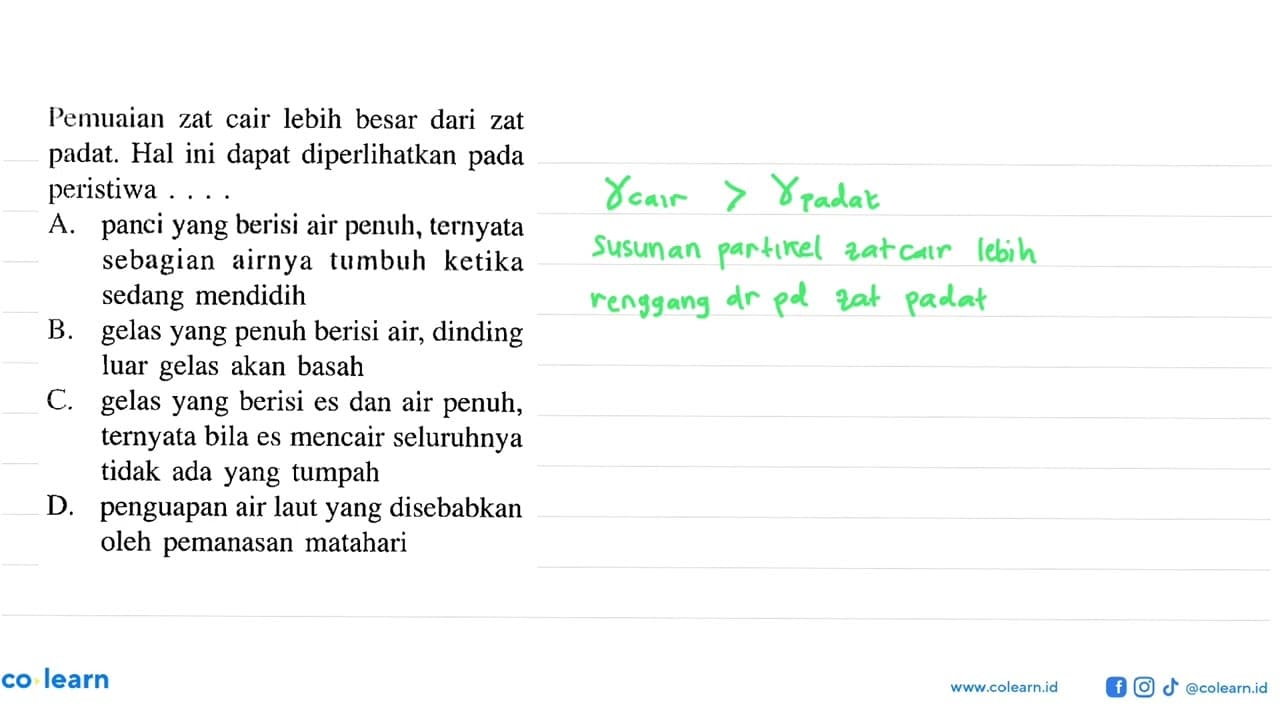 Pemuaian zat cair lebih besar dari zat
padat. Hal ini dapat diperlihatkan pada
peristiwa . . . .
A. panci yang berisi air penuh, ternyata
sebagian airnya tumbuh ketika
sedang mendidih
B. gelas yang penuh berisi air, dinding
luar gelas akan basah
C. gelas yang berisi es dan air penuh,
ternyata bila es mencair seluruhnya
tidak ada yang tumpah
D. penguapan air laut yang disebabkan
oleh pemanasan matahari
γcair > γpadat
Susunan partikel zat cair lebih
renggang dr pd zat padat
co learn
www.colearn.id
@colearn.id